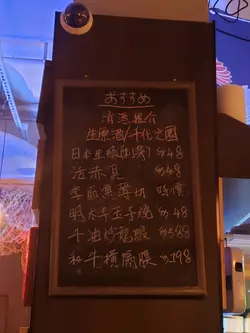 おすすめ
清酒推介
生原酒/千代之園
日本生蠔(隻) $48
活赤貝 $48
季節魚薄切 時價
特大牛玉子燒 $48
牛油炒 $588
和牛橫隔膜 $198